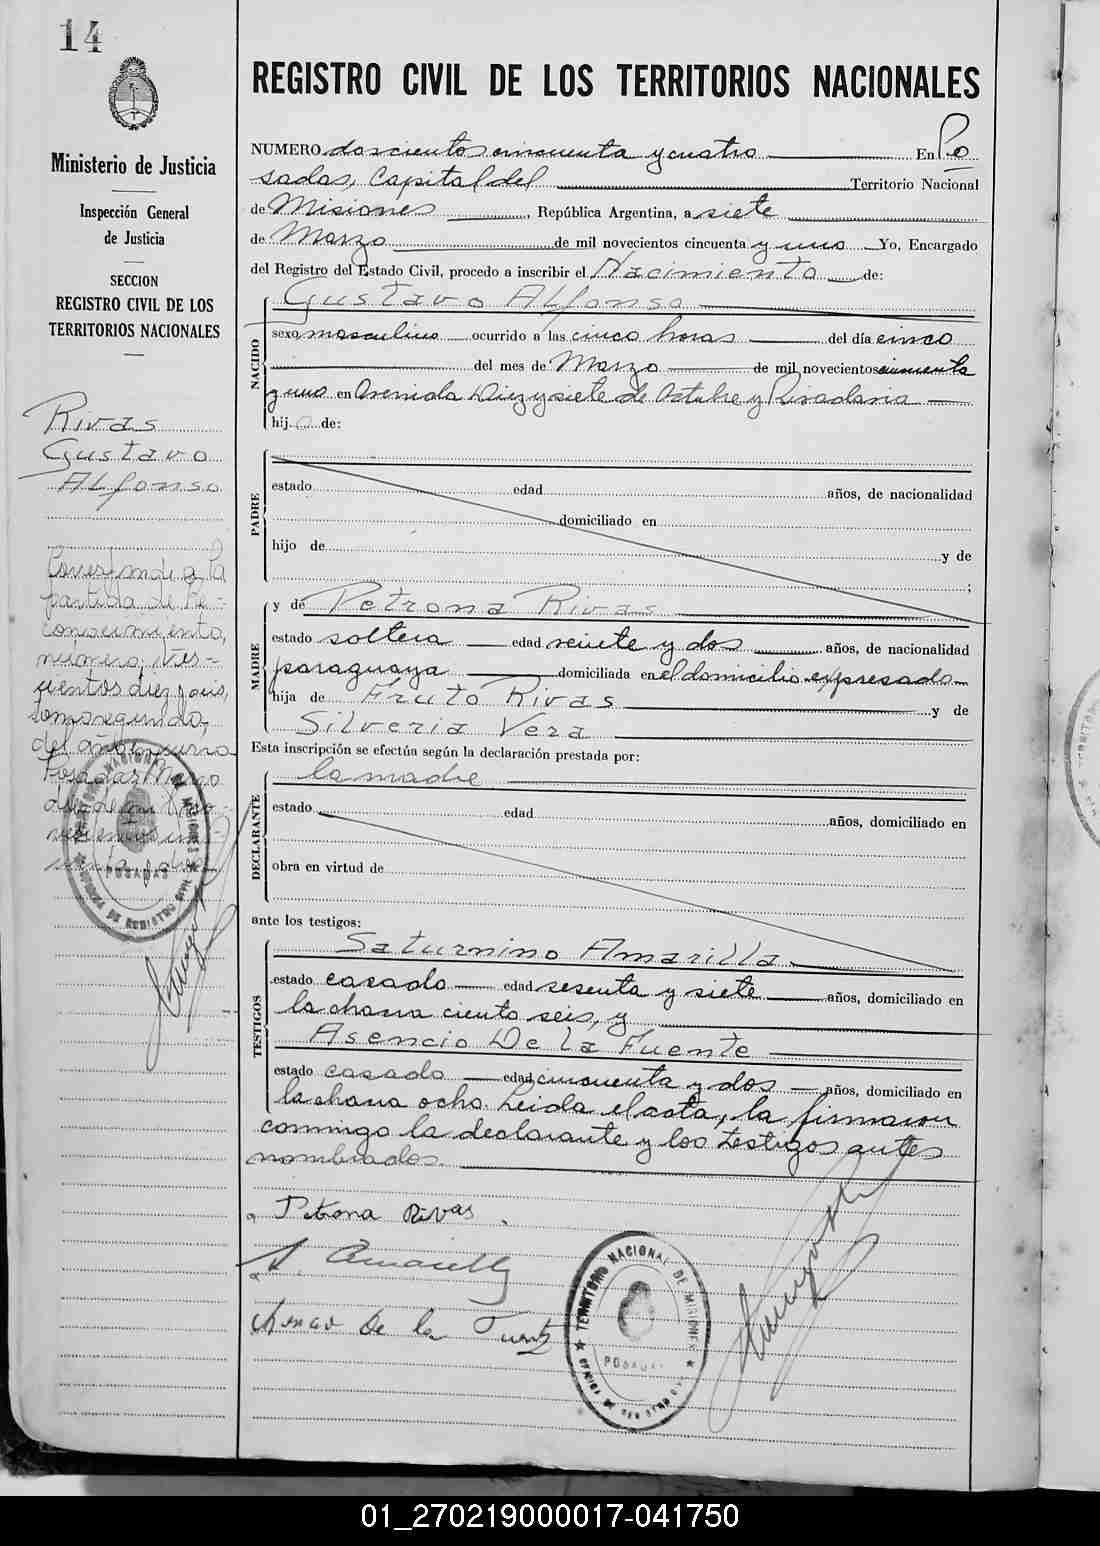 14
Ministerio de Justicia
Inspección General
de Justicia
SECCION
REGISTRO CIVIL DE LOS
TERRITORIOS NACIONALES
Rivas
Gustavo
Alfonso
Corresponde a la
partida de Re-
conocimiento,
número, tres-
cientos diez y seis,
tomo segundo,
del año en curso
Posadas Marzo
REGISTRO CIVIL DE LOS TERRITORIOS NACIONALES
NUMERO doscientos cincuenta y cuatro En Po
sadas, Capital del Territorio Nacional
de Misiones, República Argentina, a siete
de Marzo de mil novecientos cincuenta y uno Yo, Encargado
del Registro del Estado Civil, procedo a inscribir el Nacimiento de:
NACIDO
Gustavo Alfonso
sexo masculino ocurrido a las cinco horas del día cinco
del mes de Marzo de mil novecientos cincuenta
y uno en Avenida Diez y siete de Octubre y Rivadavia
hijo de:
PADRE
estado edad años, de nacionalidad
domiciliado en
hijo de y de
;
MADRE
y de Petrona Rivas
estado soltera edad veinte y dos años, de nacionalidad
paraguaya domiciliada en el domicilio expresado
hija de Fruto Rivas y de
Silveria Vera
Esta inscripción se efectúa según la declaración prestada por:
DECLARANTE
la madre
estado edad años, domiciliado en
obra en virtud de
ante los testigos:
TESTIGOS
Saturnino Amarilla
estado casado edad sesenta y siete años, domiciliado en
la chacra ciento seis, y
Asencio De la Fuente
estado casado edad cincuenta y dos años, domiciliado en
la chacra ocho. Leida el acta, la firmaron
conmigo la declarante y los testigos antes
nombrados.
Petrona Rivas
A. Amarilla
De la Fuente
TERRITORIO NACIONAL DE MISIONES
POSADAS
OFICINA DE REGISTRO CIVIL
01_270219000017-041750